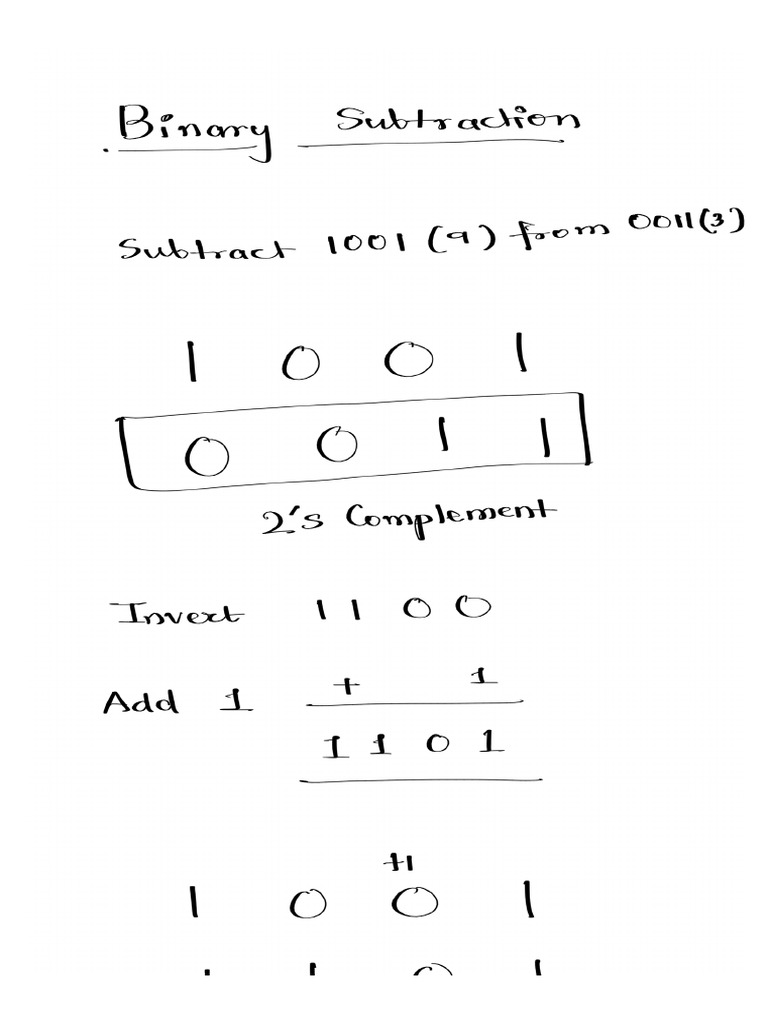 Binary Subtraction
Subtract 1001 (9) from 0011(3)
1 0 0 1
0 0 1 1
2's Complement
Invert 1 1 0 0
Add 1 + 1
1 1 0 1
+1
1 0 0 1